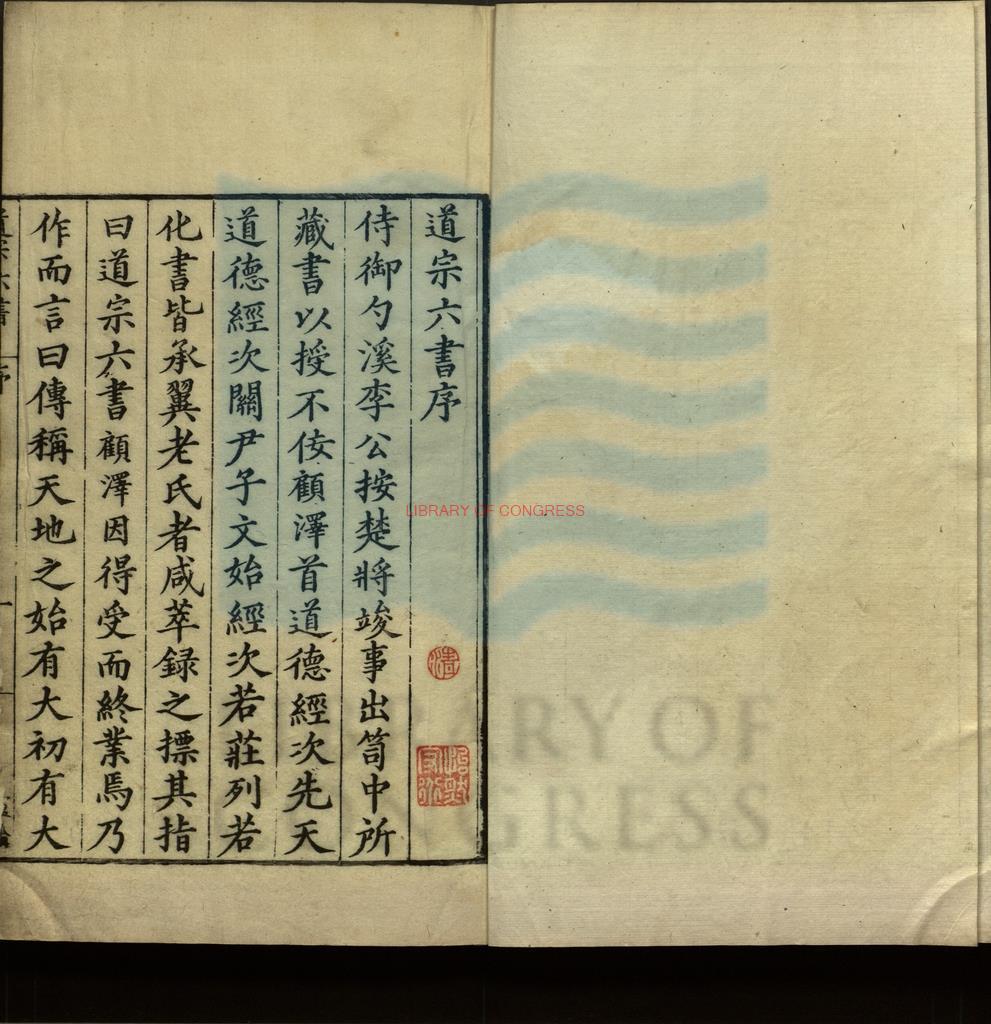 道宗六書序
侍御勺溪李公按楚將竣事出笥中所
藏書以授不佞顧澤首道德經次先天
道德經次關尹子文始經次若莊列若
化書皆承翼老氏者咸萃録之摽其指
曰道宗六書顧澤因得受而終業焉乃
作而言曰傳稱天地之始有大初有大
LIBRARY OF CONGRESS
LIBRARY OF
CONGRESS